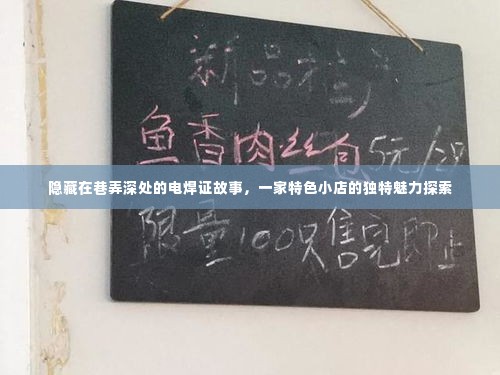 新品推广
鱼香肉丝包5元/2只
隐藏在巷弄深处的电焊证故事，一家特色小店的独特魅力探索
限量100只售完即止